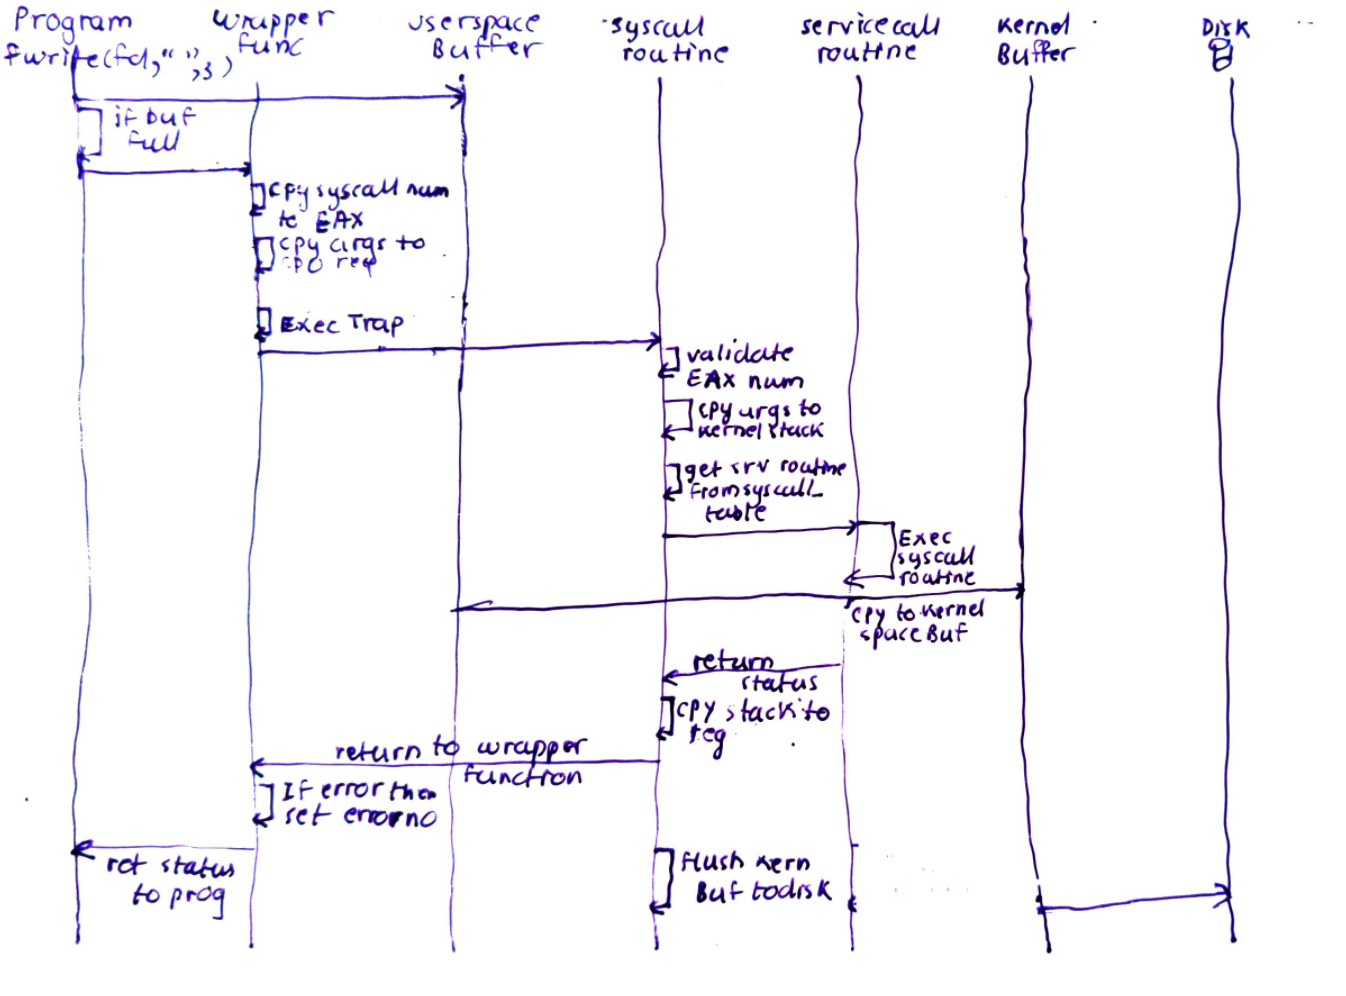 Program
fwrite(fd," ",3)
wrapper
func
userspace
Buffer
syscall
routine
servicecall
routine
Kernel
Buffer
Disk
if buf
full
cpy syscall num
to EAX
cpy args to
CPU reg
Exec Trap
validate
EAX num
cpy args to
kernel stack
get srv routine
from syscall_
table
Exec
syscall
routine
cpy to kernel
space Buf
return
status
cpy stack to
reg
return to wrapper
function
If error then
set errorno
ret status
to prog
flush kern
Buf to disk